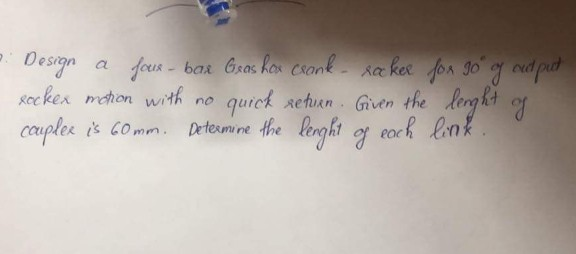 Design a four-bar Grashor crank-rocker for 90° of output
rocker motion with no quick return. Given the lenght of
coupler is 60mm. Determine the lenght of each link.